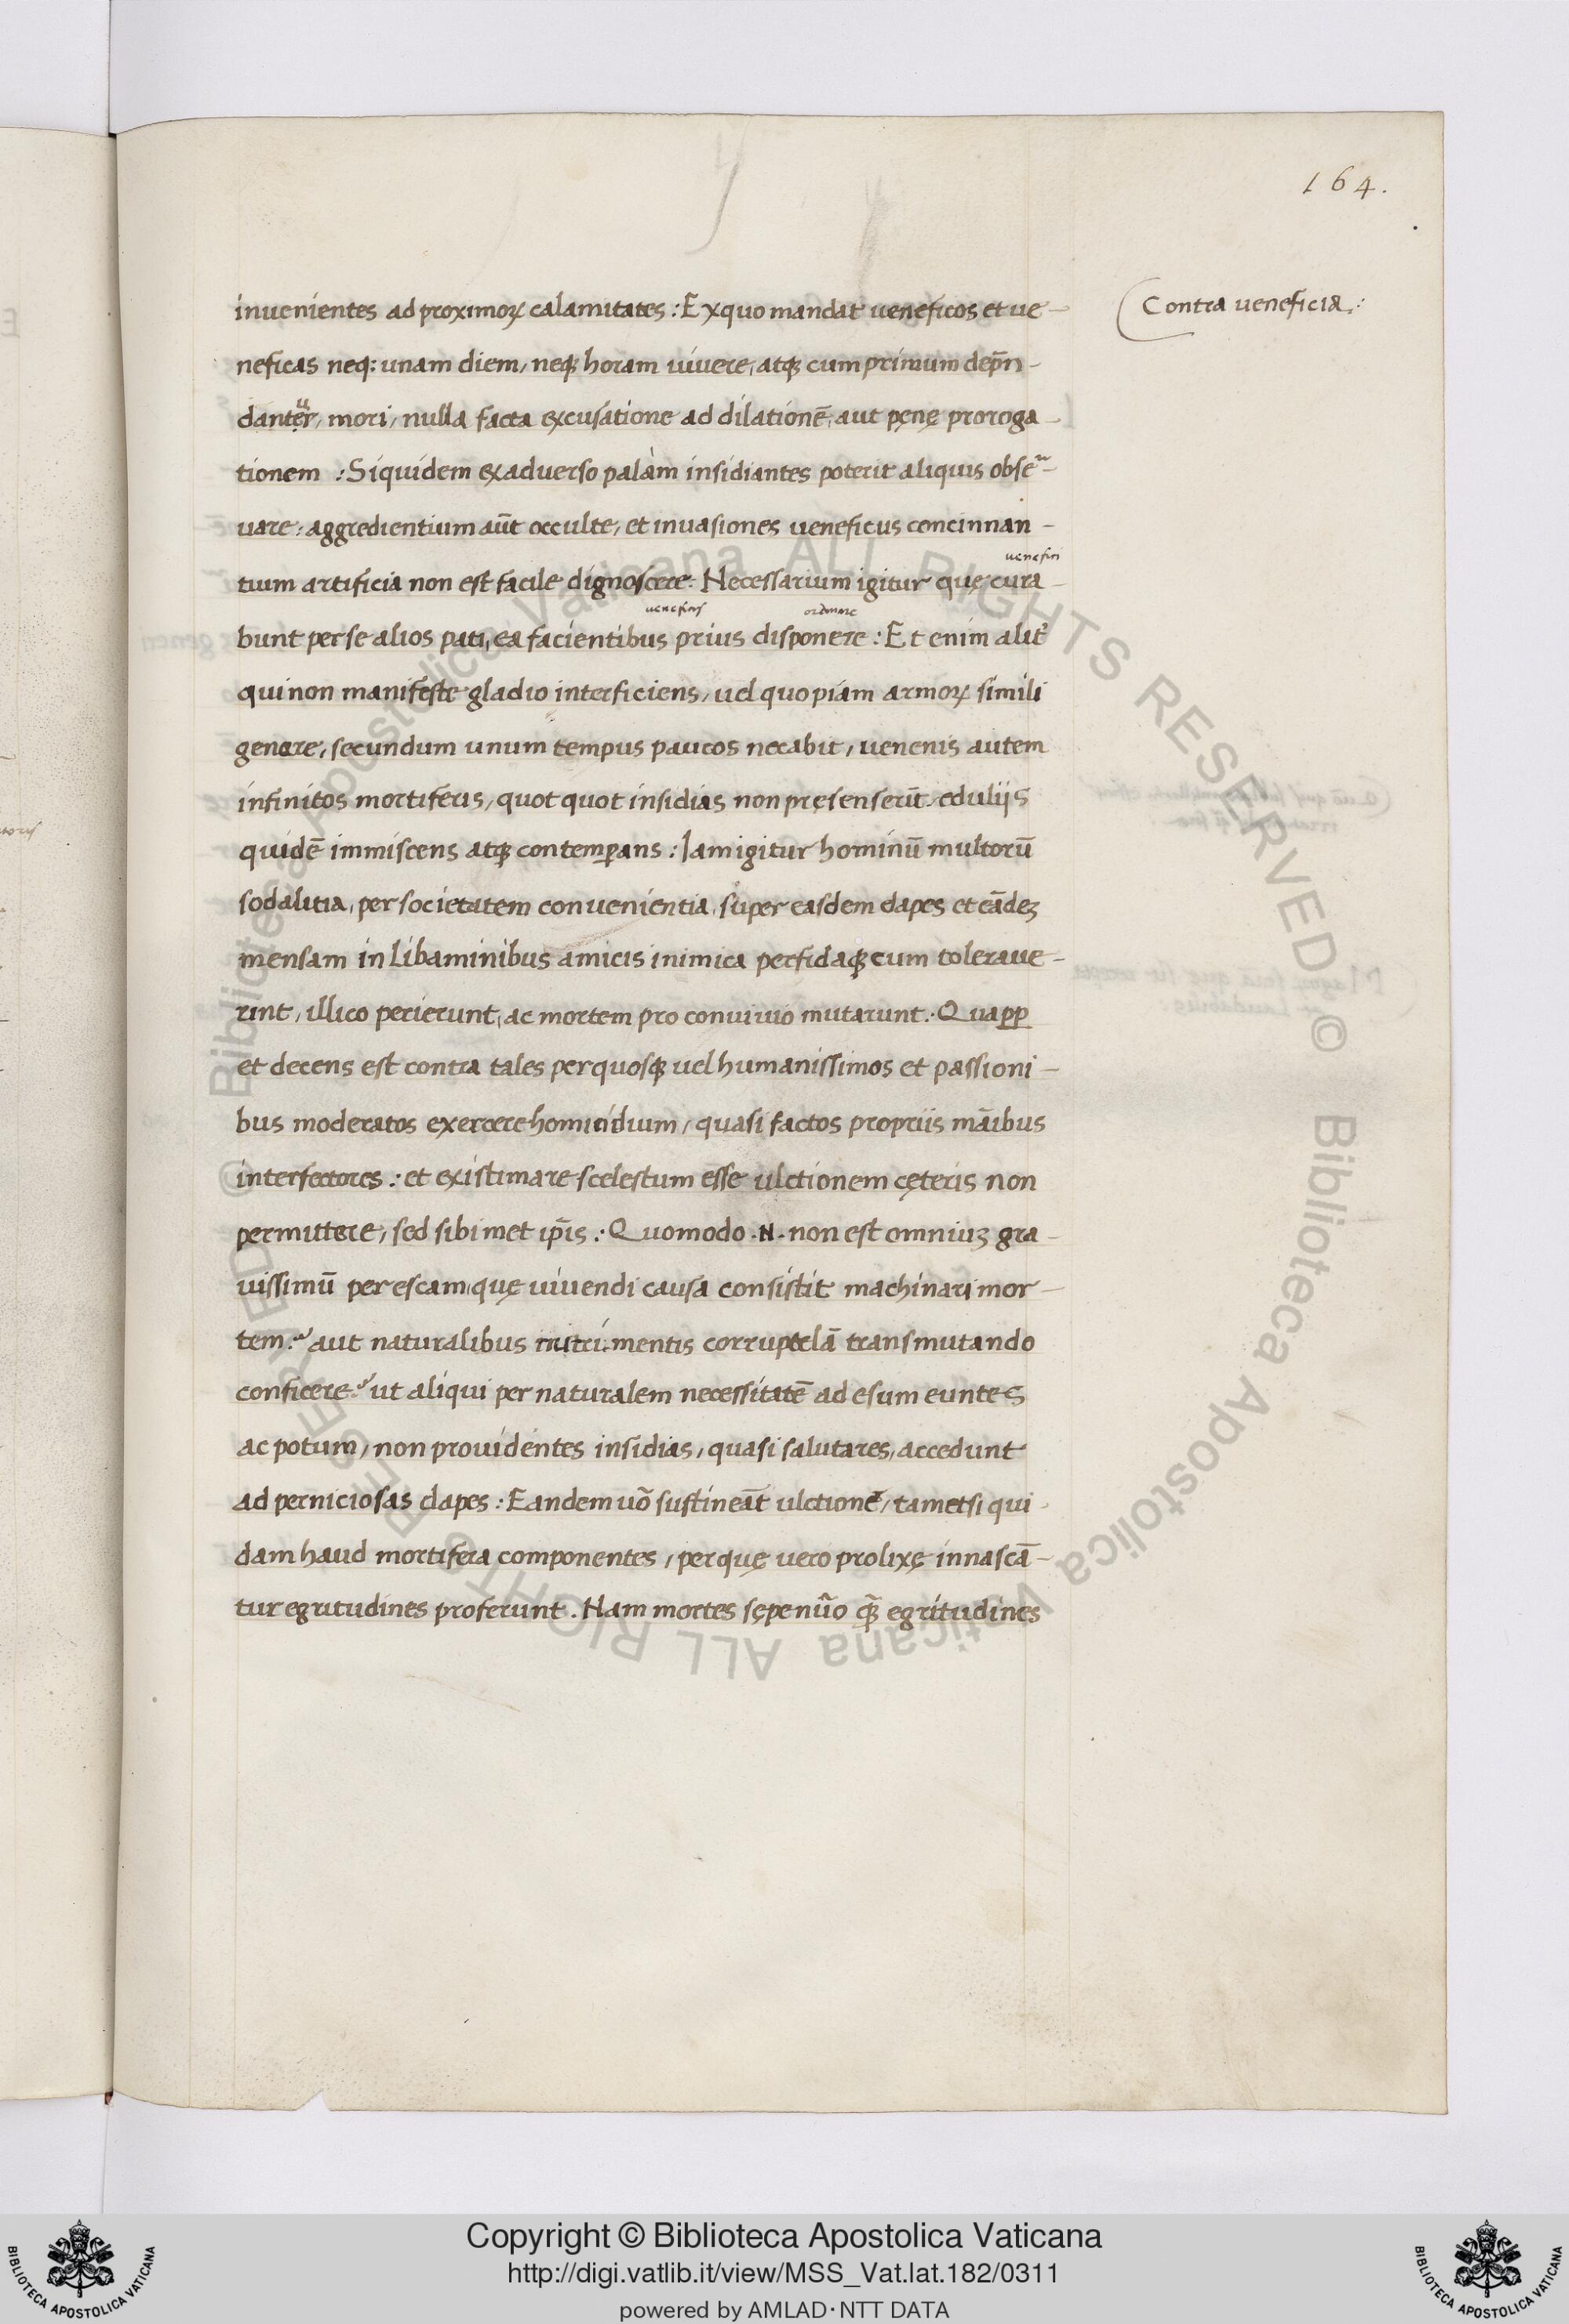 164.
Contra ueneficia:
inuenientes ad proximoꝝ calamitates: Ex quo mandat ueneficos et ue-
neficas neq: unam diem, neqꝫ horam uiuere, atqꝫ cum primum dep̄n-
danter, mori, nulla facta excusatione ad dilationē, aut pęnę proroga-
tionem: Siquidem ex aduerso palàm insidiantes poterit aliquis obse-
uare: aggredientium aūt occulte, et inuasiones ueneficus concinnan-
uenefici
tium artificia non est facile dignoscere. Necessarium igitur quę cura-
ueneficis ordinare
bunt per se alios pati, ea facientibus prius disponere: Et enim alit̓
qui non manifeste gladio interficiens, uel quopiam armoꝝ simili
genere, secundum unum tempus paucos necabit, uenenis autem
infinitos mortiferis, quot quot insidias non pręsenserūt, eduliis
quidē immiscens atqꝫ contemꝑans: Iam igitur hominū multorū
sodalitia, per societatem conuenientia, super easdem dapes et eādeꝫ
mensam in libaminibus amicis inimica perfidaqꝫ cum toleraue-
rint, illico perierunt, ac mortem pro conuiuio mutarunt. Quaꝓꝑ
et decens est contra tales per quosqꝫ uel humanissimos et passioni-
bus moderatos exercere homicidium, quasi factos propriis māibus
interfectores: et existimare scelestum esse ulctionem cęteris non
permittere, sed sibimet ip̄is: Quomodo .N. non est omniuꝫ gra-
uissimū per escam, quę uiuendi causa consistit machinari mor-
tem? aut naturalibus nutrimentis corruptelā transmutando
conficere? ut aliqui per naturalem necessitatē ad esum euntes
ac potum, non prouidentes insidias, quasi salutares, accedunt
ad perniciosas dapes: Eandem uō sustineāt ulctionē, tametsi qui-
dam haud mortifera componentes, per quę uero prolixę innascā-
tur egritudines proferunt. Nam mortes sępenūo qȝ̄ egritudines
Copyright © Biblioteca Apostolica Vaticana
http://digi.vatlib.it/view/MSS_Vat.lat.182/0311
powered by AMLAD · NTT DATA
BIBLIOTECA APOSTOLICA VATICANA
BIBLIOTECA APOSTOLICA VATICANA
© Biblioteca Apostolica Vaticana ALL RIGHTS RESERVED © Biblioteca Apostolica Vaticana ALL RIGHTS RESERVED